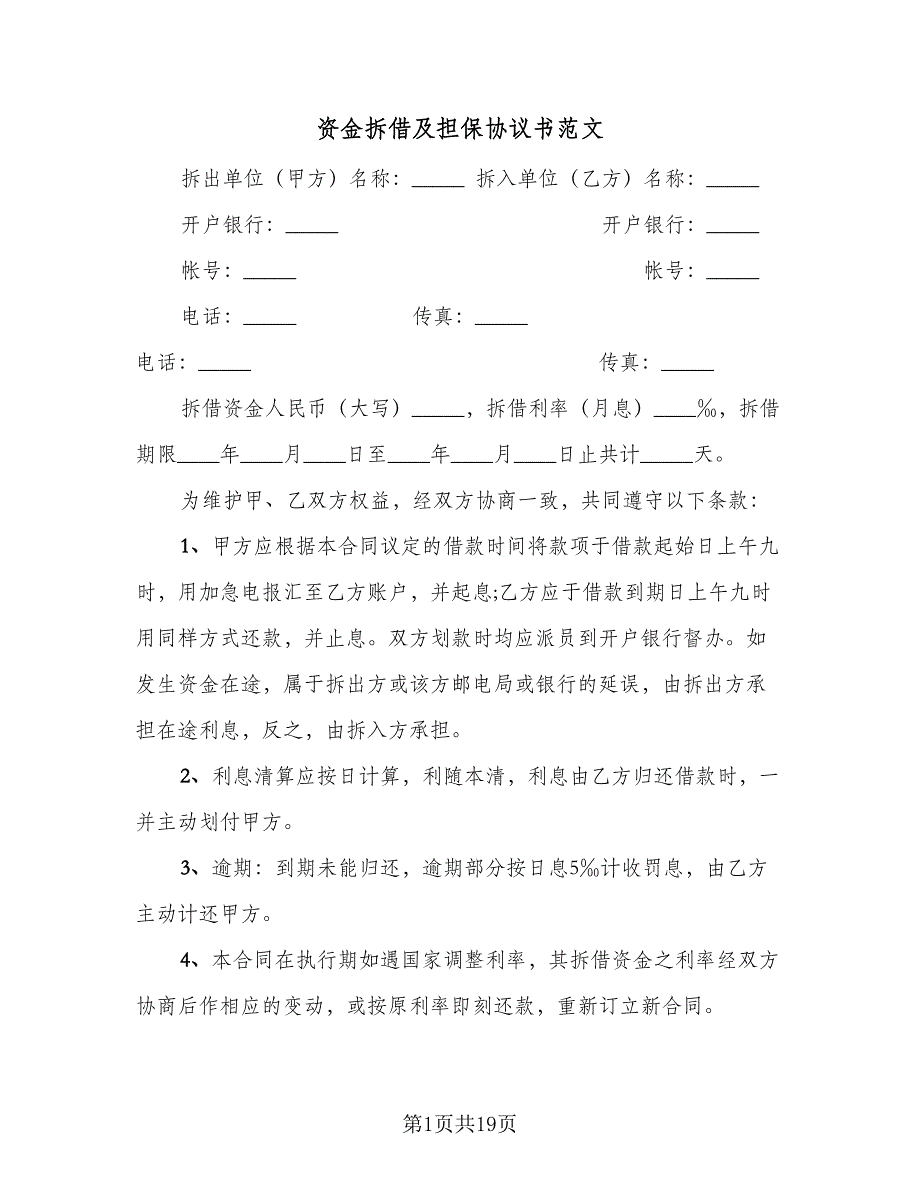 资金拆借及担保协议书范文
拆出单位（甲方）名称：_____ 拆入单位（乙方）名称：_____
开户银行：_____ 开户银行：_____
帐号：_____ 帐号：_____
电话：_____ 传真：_____
电话：_____ 传真：_____
拆借资金人民币（大写）_____，拆借利率（月息）____‰，拆借
期限____年____月____日至____年____月____日止共计_____天。
为维护甲、乙双方权益，经双方协商一致，共同遵守以下条款：
1、甲方应根据本合同议定的借款时间将款项于借款起始日上午九
时，用加急电报汇至乙方账户，并起息;乙方应于借款到期日上午九时
用同样方式还款，并止息。双方划款时均应派员到开户银行督办。如
发生资金在途，属于拆出方或该方邮电局或银行的延误，由拆出方承
担在途利息，反之，由拆入方承担。
2、利息清算应按日计算，利随本清，利息由乙方归还借款时，一
并主动划付甲方。
3、逾期：到期未能归还，逾期部分按日息5‰计收罚息，由乙方
主动计还甲方。
4、本合同在执行期如遇国家调整利率，其拆借资金之利率经双方
协商后作相应的变动，或按原利率即刻还款，重新订立新合同。
第1页共19页